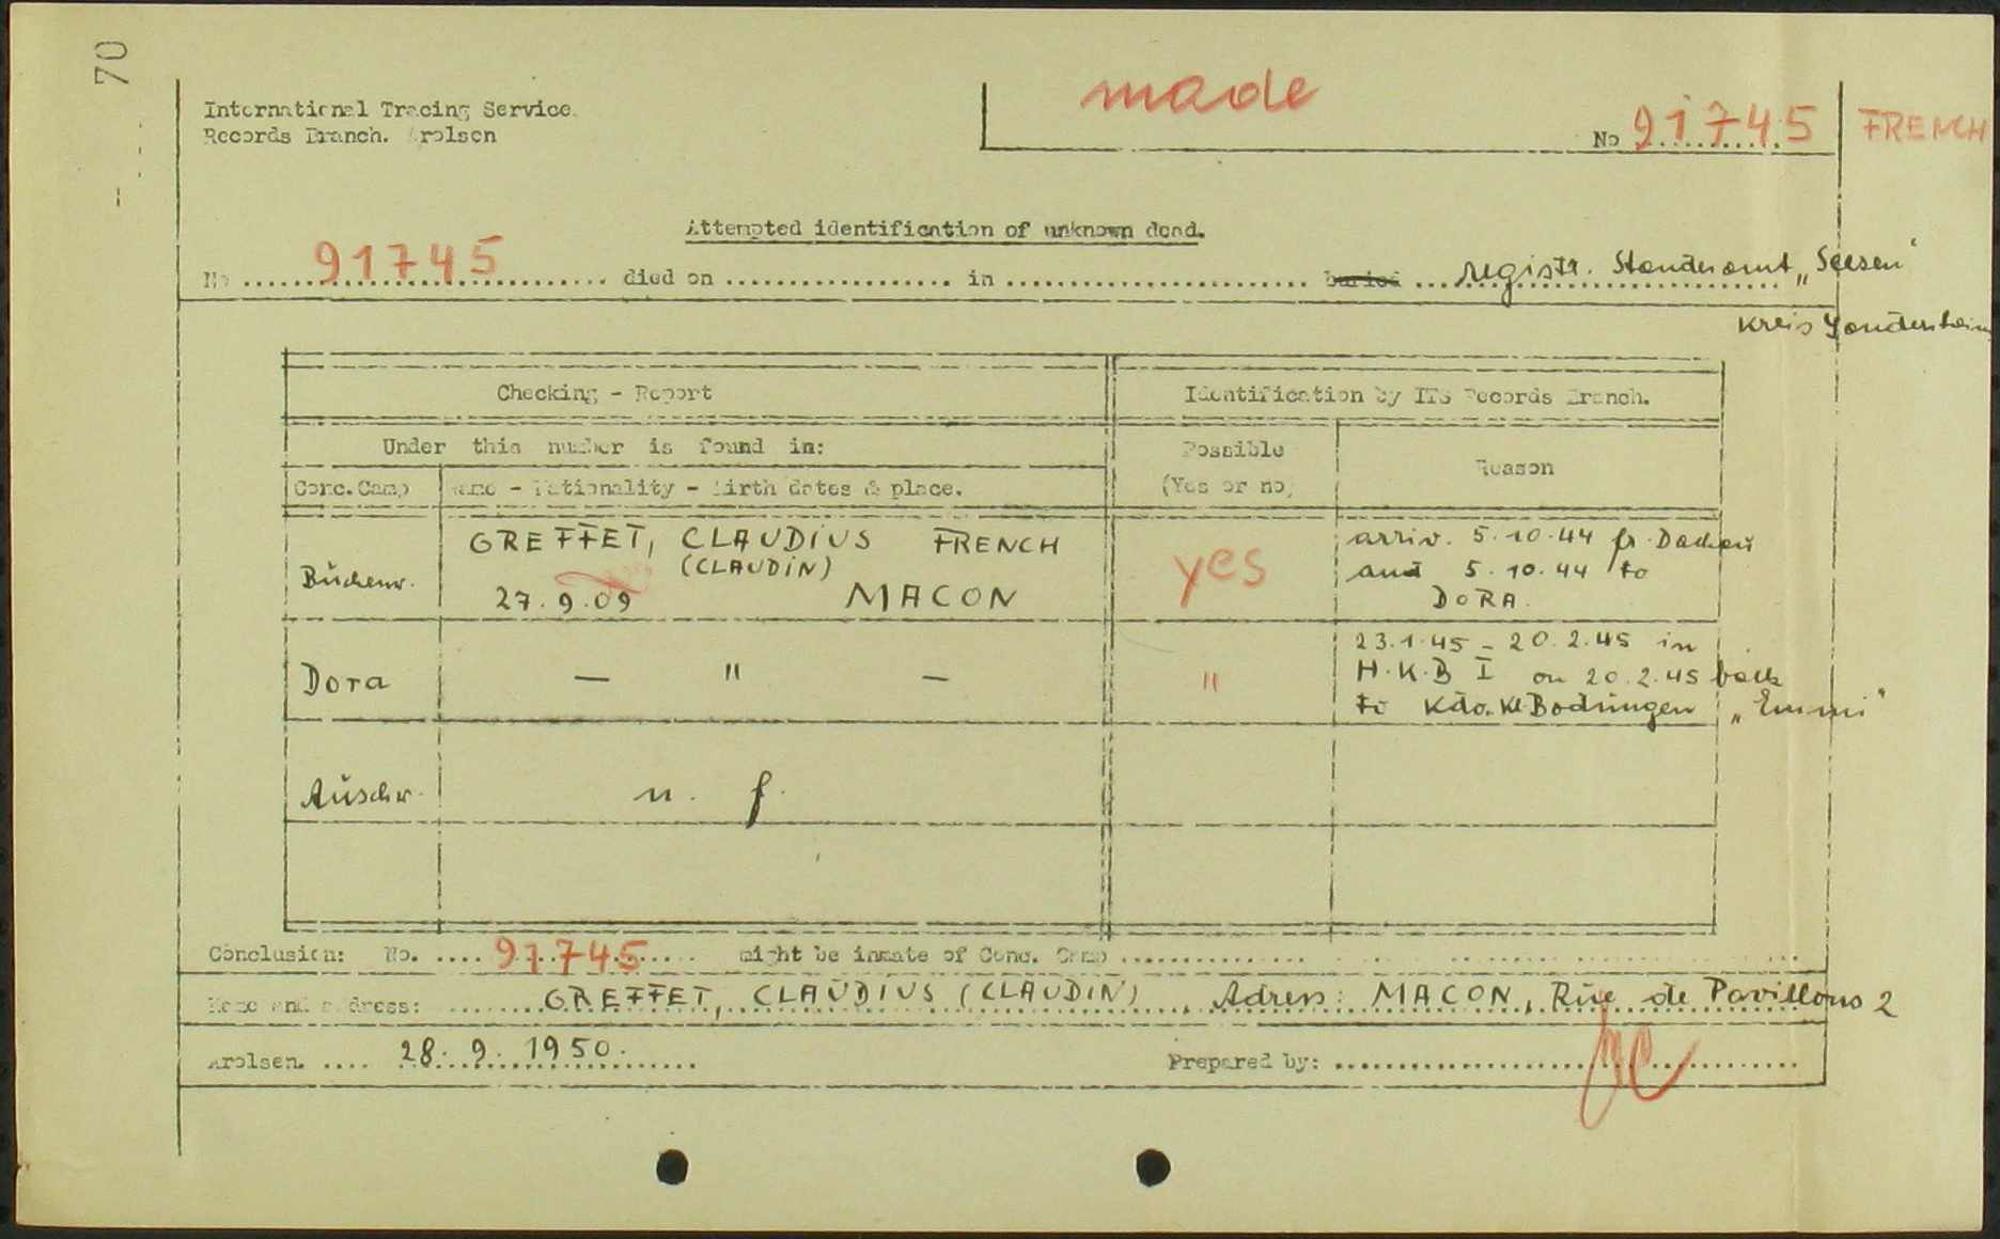 70
International Tracing Service
Records Branch. Arolsen
made
No 91745
FRENCH
Attempted identification of unknown dead.
No ........ 91745 ........ died on ........ in ........ buried ... registr. Standesamt „Seesen"
Kreis
Checking - Report
Identification by ITS Records Branch.
Under this number is found in:
Possible
(Yes or no)
Reason
Conc. Camp
Name - Nationality - Birth dates & place.
Buchenw.
GREFFET, CLAUDIUS FRENCH
(CLAUDIN)
27.9.09 MACON
yes
arriv. 5.10.44 fr. Dachau
and 5.10.44 to
DORA.
Dora
— " —
"
23.1.45 - 20.2.45 in
H.K.B I on 20.2.45 back
to Kdo. Kl Bodungen „Emmi"
Auschw.
n. f.
Conclusion: No. .... 91745 ..... might be inmate of Conc. Camp ........
Name and address: ........ GREFFET, CLAUDIUS (CLAUDIN) , Adress: MACON, Rue de Pavillons 2
Arolsen. .... 28. 9. 1950.
Prepared by: ........